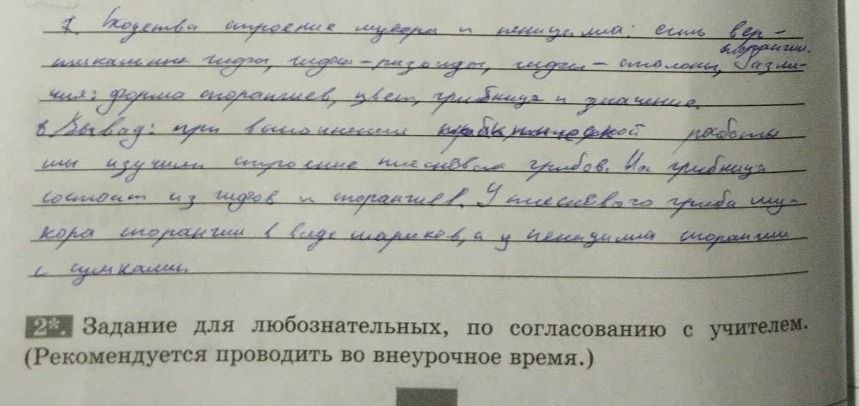 7. Сходства строение мукора и пеницилла: есть вер-
тикальные гифы, гифы-ризоиды, гифы-столоны, спорангии. Разли-
чия: форма спорангиев, цвет, грибница и значение.
8 Вывод: при выполнении практической работы
мы изучили строение плесневых грибов. Их грибница
состоит из гифов и спорангиев. У плесневого гриба му-
кора спорангии в виде шариков, а у пеницилла спорангии
с сумками.
2*. Задание для любознательных, по согласованию с учителем.
(Рекомендуется проводить во внеурочное время.)